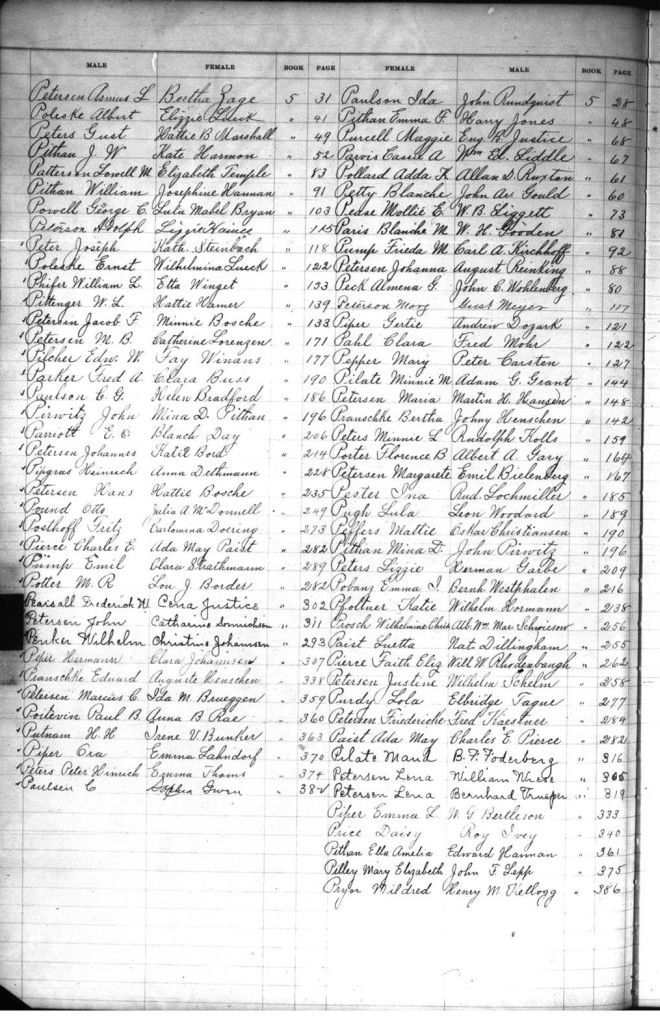 MALE FEMALE BOOK PAGE FEMALE MALE BOOK PAGE
Petersen Asmus L Bertha Zage 5 31 Paulson Ida John Rundquist 5 28
Poleske Albert Elizzie " 41 Pithan Emma F. Harry Jones " 48
Peters Gust Hattie B Marshall " 49 Purcell Maggie Eug B Justice " 68
Pithan J. W Kate Hannon " 52 Parvis Cassie A Wm Ed. Liddle " 67
Patterson Lowell M Elizabeth Temple " 83 Pollard Adda K Allan D. Ruxton " 61
Pithan William Josephine Hannan " 91 Petty Blanche John Ar. Gould " 60
Powell George C. Lulu Mabel Bryan " 103 Pease Mollie E. W. B. Liggett " 73
Peterson Adolph Lizzie " 115 Paris Blanche M W. H. Gooden " 81
Peter Joseph Kath. Steinbach " 118 Pump Frieda M Carl A. Kirchhoff " 92
Poleske Ernst Wilhelmina Lueck " 122 Petersen Johanna August Reinking " 88
Phifer William L Etta Winget " 153 Peck Almena G. John C. Wohlenberg " 80
Pittenger W. L. Hattie Hamer " 139 Peterson Mary Gust Meyer " 117
Petersen Jacob F Minnie Bosche " 133 Piper Gertie Andrew Dozark " 121
Petersen M. B. Catherine Lorenzen " 171 Pahl Clara Fred Mohr " 122
Pilcher Edw. W Fay Winans " 177 Pepper Mary Peter Carsten " 127
Parker Fred A Clara Buss " 190 Pilate Minnie M Adam G. Grant " 144
Paulson C. G. Helen Bradford " 186 Petersen Maria Martin H. Hansen " 148
Pirwitz John Mina D. Pithan " 196 Pranschke Bertha Johny Henschen " 142
Parriott E. O Blanch Day " 206 Peters Minnie L Rudolph Kolls " 159
Petersen Johannes Katie Bord " 214 Porter Florence B Albert A. Gary " 164
Heinrich Anna Dethmann " 228 Petersen Margarete Emil Bielenberg " 167
Petersen Hans Hattie Bosche " 235 Pester Ina Rud. Lochmiller " 185
Pound Otto Julia A McDonnell " 249 Pugh Lula Leon Woodard " 189
Posthoff Fritz Carlomina Doering " 273 Peffers Mattie Oskar Christiansen " 190
Pierce Charles E. Ada May Paist " 282 Pithan Mina D. John Pirwitz " 196
Pump Emil Clara Strathmann " 289 Peters Lizzie Herman Garbe " 209
Potter M. R Lou J Border " 282 Pobanz Emma I. Bernh Westphalen " 216
Pearsall Frederick W Cena Justice " 302 Pfoltner Katie Wilhelm Hormann " 238
Petersen John Catharine Sonnichsen " 311 Prosch Wilhelmine Alb. Wm. Mar. " 256
Penker Wilhelm Christine Johannsen " 293 Paist Luetta Nat. Dillingham " 255
Piper Hermann Clara Johannsen " 307 Pierce Faith Eliz Will W Rhodenbaugh " 262
Pranschke Eduard Auguste Henschen " 338 Petersen Justine Wilhelm Schelm " 258
Petersen Marcus C. Ida M. Brueggen " 359 Purdy Lola Elbridge Tague " 277
Poitevin Paul B Anna B Rae " 360 Petersen Friedericke Fred Kaestner " 284
Putnam H. H Irene V. Bunker " 363 Paist Ada May Charles E. Pierce " 282
Piper Ora Emma Lahndorf " 370 Pilate Maud B. F. Foderberg " 316
Peters Peter Hinrich Emma Thoms " 374 Petersen Lena William Wiese " 305
Paulsen C Sophia " 382 Petersen Lena Bernhard Trueper " 319
Piper Emma L. W. G Bertleson " 333
Price Daisy Roy Ivey " 340
Pithan Ella Amelia Edward Hannan " 361
Pelley Mary Elizabeth John F. Lepp " 375
Pryor Mildred Henry M. Kellogg " 386